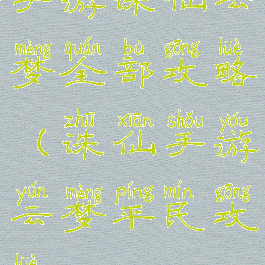 手游诛仙云
mèng quán bù gōng lüè
梦全部攻略
zhū xiān shǒu yóu
(诛仙手游
yún mèng píng mín gōng
云梦平民攻
lüè